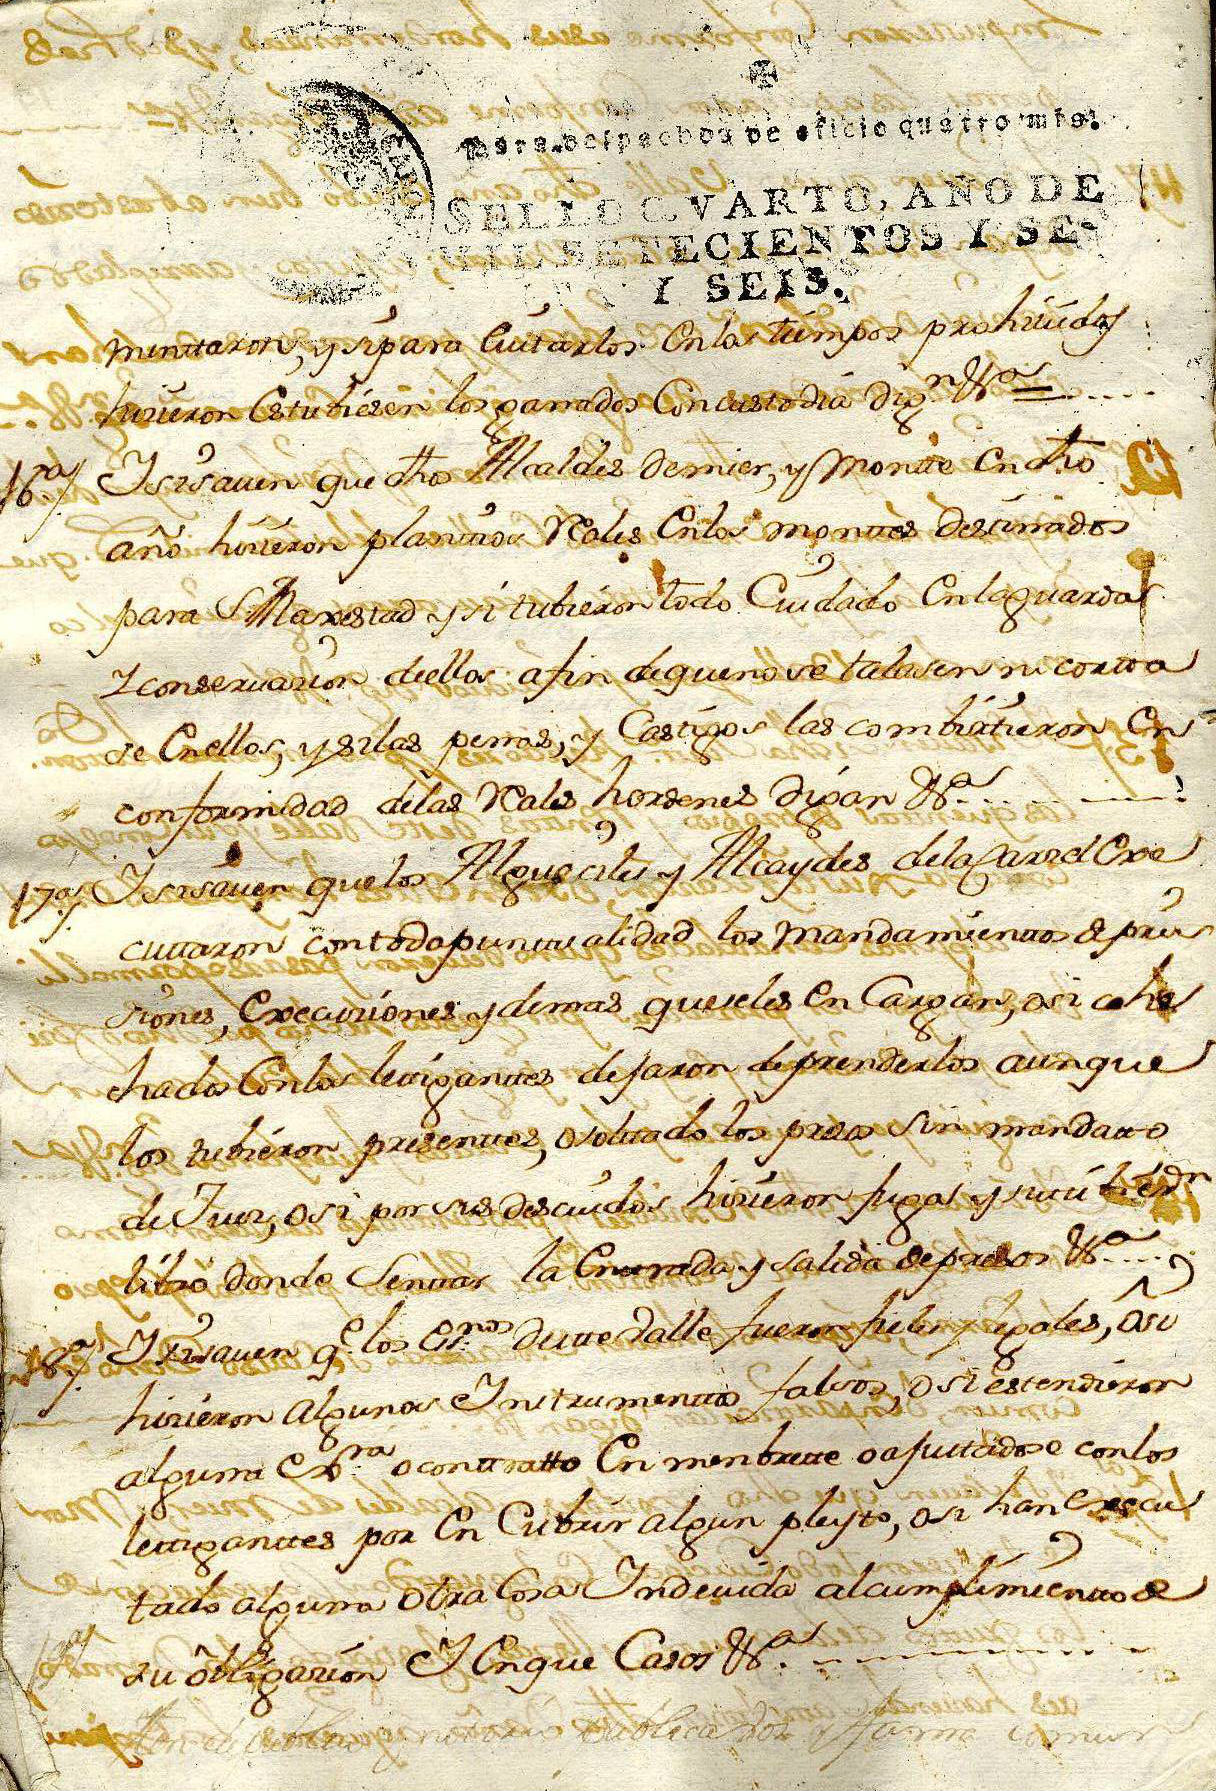 Para despachos de oficio quatro mrs.
SELLO QVARTO, AÑO DE
MIL SETECIENTOS Y SE-
Y SEIS.
minttaron, y si para Cuitarlos En los tiempos prohiuidos
hiçieron Estubiesen los ganados Con custodia dig.n &.a
16.a Y si sauen que dhos Alcaldes de mier, y Montte En dho
año hiçieron planttios Rales En los monttes destinados
para S Maxestad y si tubieron todo Cuidado En la guarda
Y conseruaçion dellos a fin de que no se talasen ni cortta
se En ellos, y si las penas, y Castigos las combirtieron En
conformidad de las Rales hordenes digan &.a
17.a Y si sauen que los Alguaciles y Alcaydes de la Carzel Exe
cuttaron con toda punttualidad los mandamienttos de pris
siones, Execuçiones y demas que se les En Cargan, o si cohe
chados Con los leitiganttes dejaron de prenderlos aunque
los tubieron presenttes, o soltado los presos sin mandatto
de Juez, o si por sus descuidos hiçieron fugas y si tubieron
libro donde Senttar la Enttrada y salida de presos &.a
18.a Y si sauen q.e los Es.nos deste Valle fueron fieles y legales, o si
hiçieron algunos Instrumenttos falsos, o si estendieron
alguna Es.ra o conttratto En menbrete o ajuttadose con los
leitiganttes por En Cubrir algun pleyto, o si han Execu
tado alguna otra Cosa Indeuida al cumplimientto de
su obligaçion Y En que Casos &.a